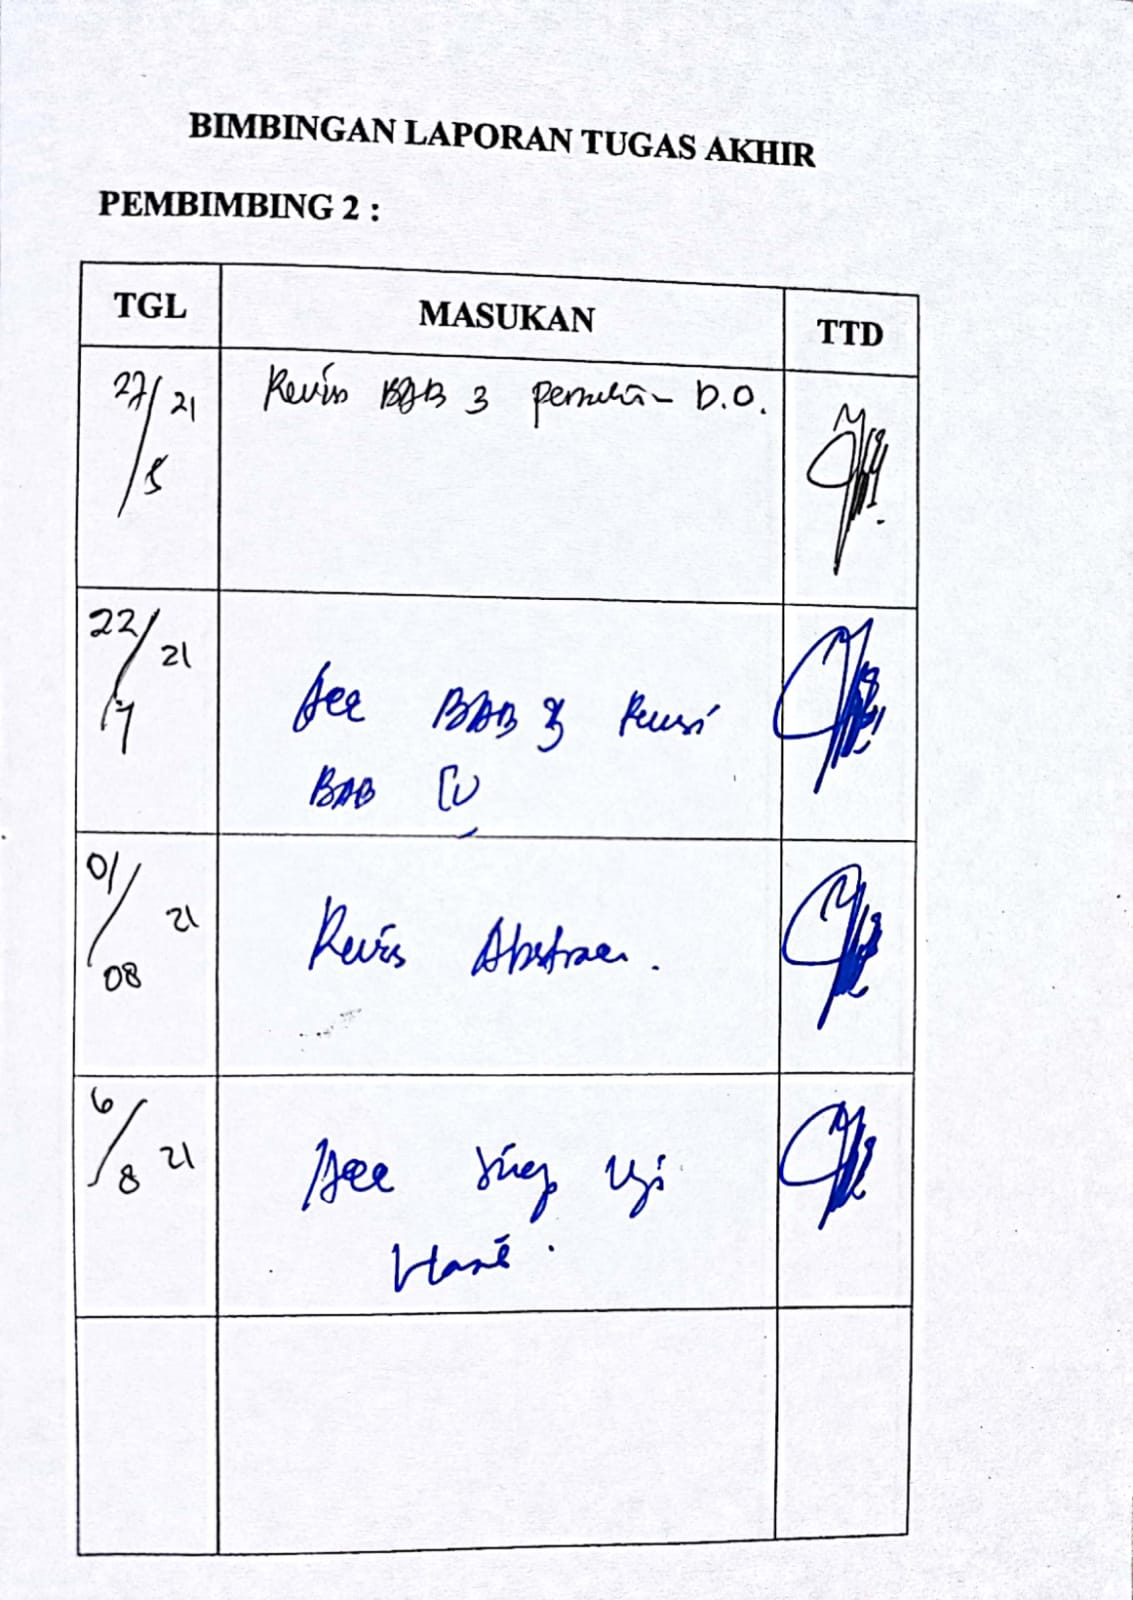 BIMBINGAN LAPORAN TUGAS AKHIR
PEMBIMBING 2 :
TGL MASUKAN TTD
27/5 21 Revisi BAB 3 D.O.
22/7 21 Acc BAB 3 Revisi
BAB IV
01/08 21 Revisi Abstrac.
6/8 21 Acc Siap Uji
Hasil.